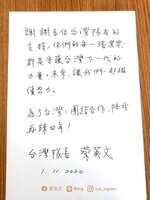 謝謝各位台灣隊友的
支持,你們的每一張選票,
都是守護台灣下一代的
力量。未來,讓我們一起繼
續努力。
為了台灣,團結合作,陪好
再護四年!
台灣隊長 蔡英文
1. 11. 2020
蔡英文
@iing
tsai_ingwen